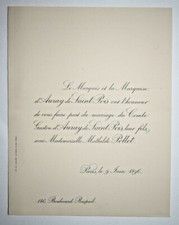 Le Marquis et la Marquise
d'Auray de Saint Pois ont l'honneur
de vous faire part du mariage du Comte
Gaston d'Auray de Saint Pois, leur fils,
avec Mademoiselle Mathilde Pollet.
Paris, le 9 Juin 1896.
Boulevard Raspail.